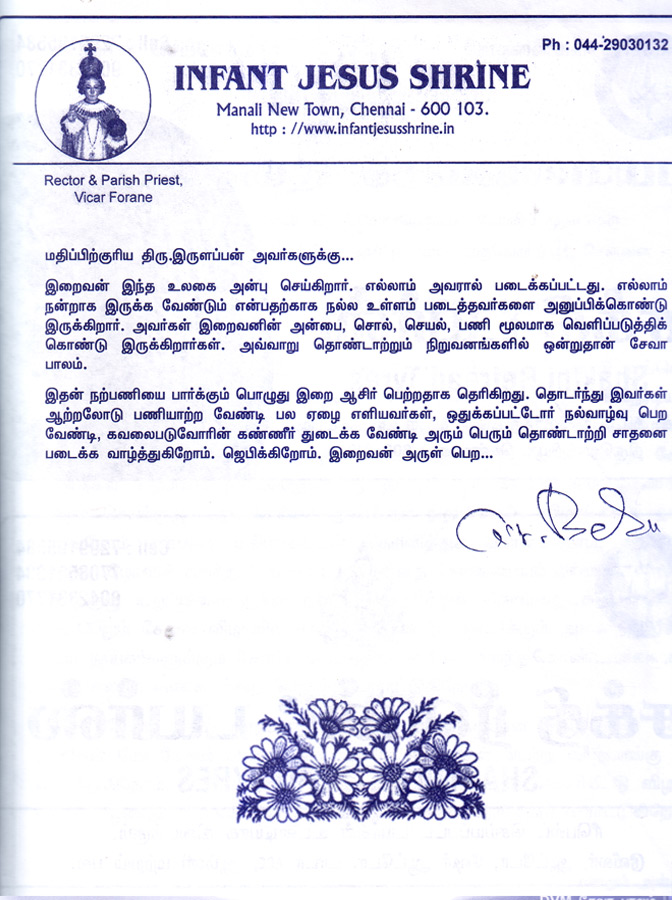 Ph : 044-29030132
INFANT JESUS SHRINE
Manali New Town, Chennai - 600 103.
http : //www.infantjesusshrine.in
Rector & Parish Priest,
Vicar Forane
மதிப்பிற்குரிய திரு.இருளப்பன் அவர்களுக்கு...
இறைவன் இந்த உலகை அன்பு செய்கிறார். எல்லாம் அவரால் படைக்கப்பட்டது. எல்லாம்
நன்றாக இருக்க வேண்டும் என்பதற்காக நல்ல உள்ளம் படைத்தவர்களை அனுப்பிக்கொண்டு
இருக்கிறார். அவர்கள் இறைவனின் அன்பை, சொல், செயல், பணி மூலமாக வெளிப்படுத்திக்
கொண்டு இருக்கிறார்கள். அவ்வாறு தொண்டாற்றும் நிறுவனங்களில் ஒன்றுதான் சேவா
பாலம்.
இதன் நற்பணியை பார்க்கும் பொழுது இறை ஆசிர் பெற்றதாக தெரிகிறது. தொடர்ந்து இவர்கள்
ஆற்றலோடு பணியாற்ற வேண்டி பல ஏழை எளியவர்கள், ஒதுக்கப்பட்டோர் நல்வாழ்வு பெற
வேண்டி, கவலைபடுவோரின் கண்ணீர் துடைக்க வேண்டி அரும் பெரும் தொண்டாற்றி சாதனை
படைக்க வாழ்த்துகிறோம். ஜெபிக்கிறோம். இறைவன் அருள் பெற...